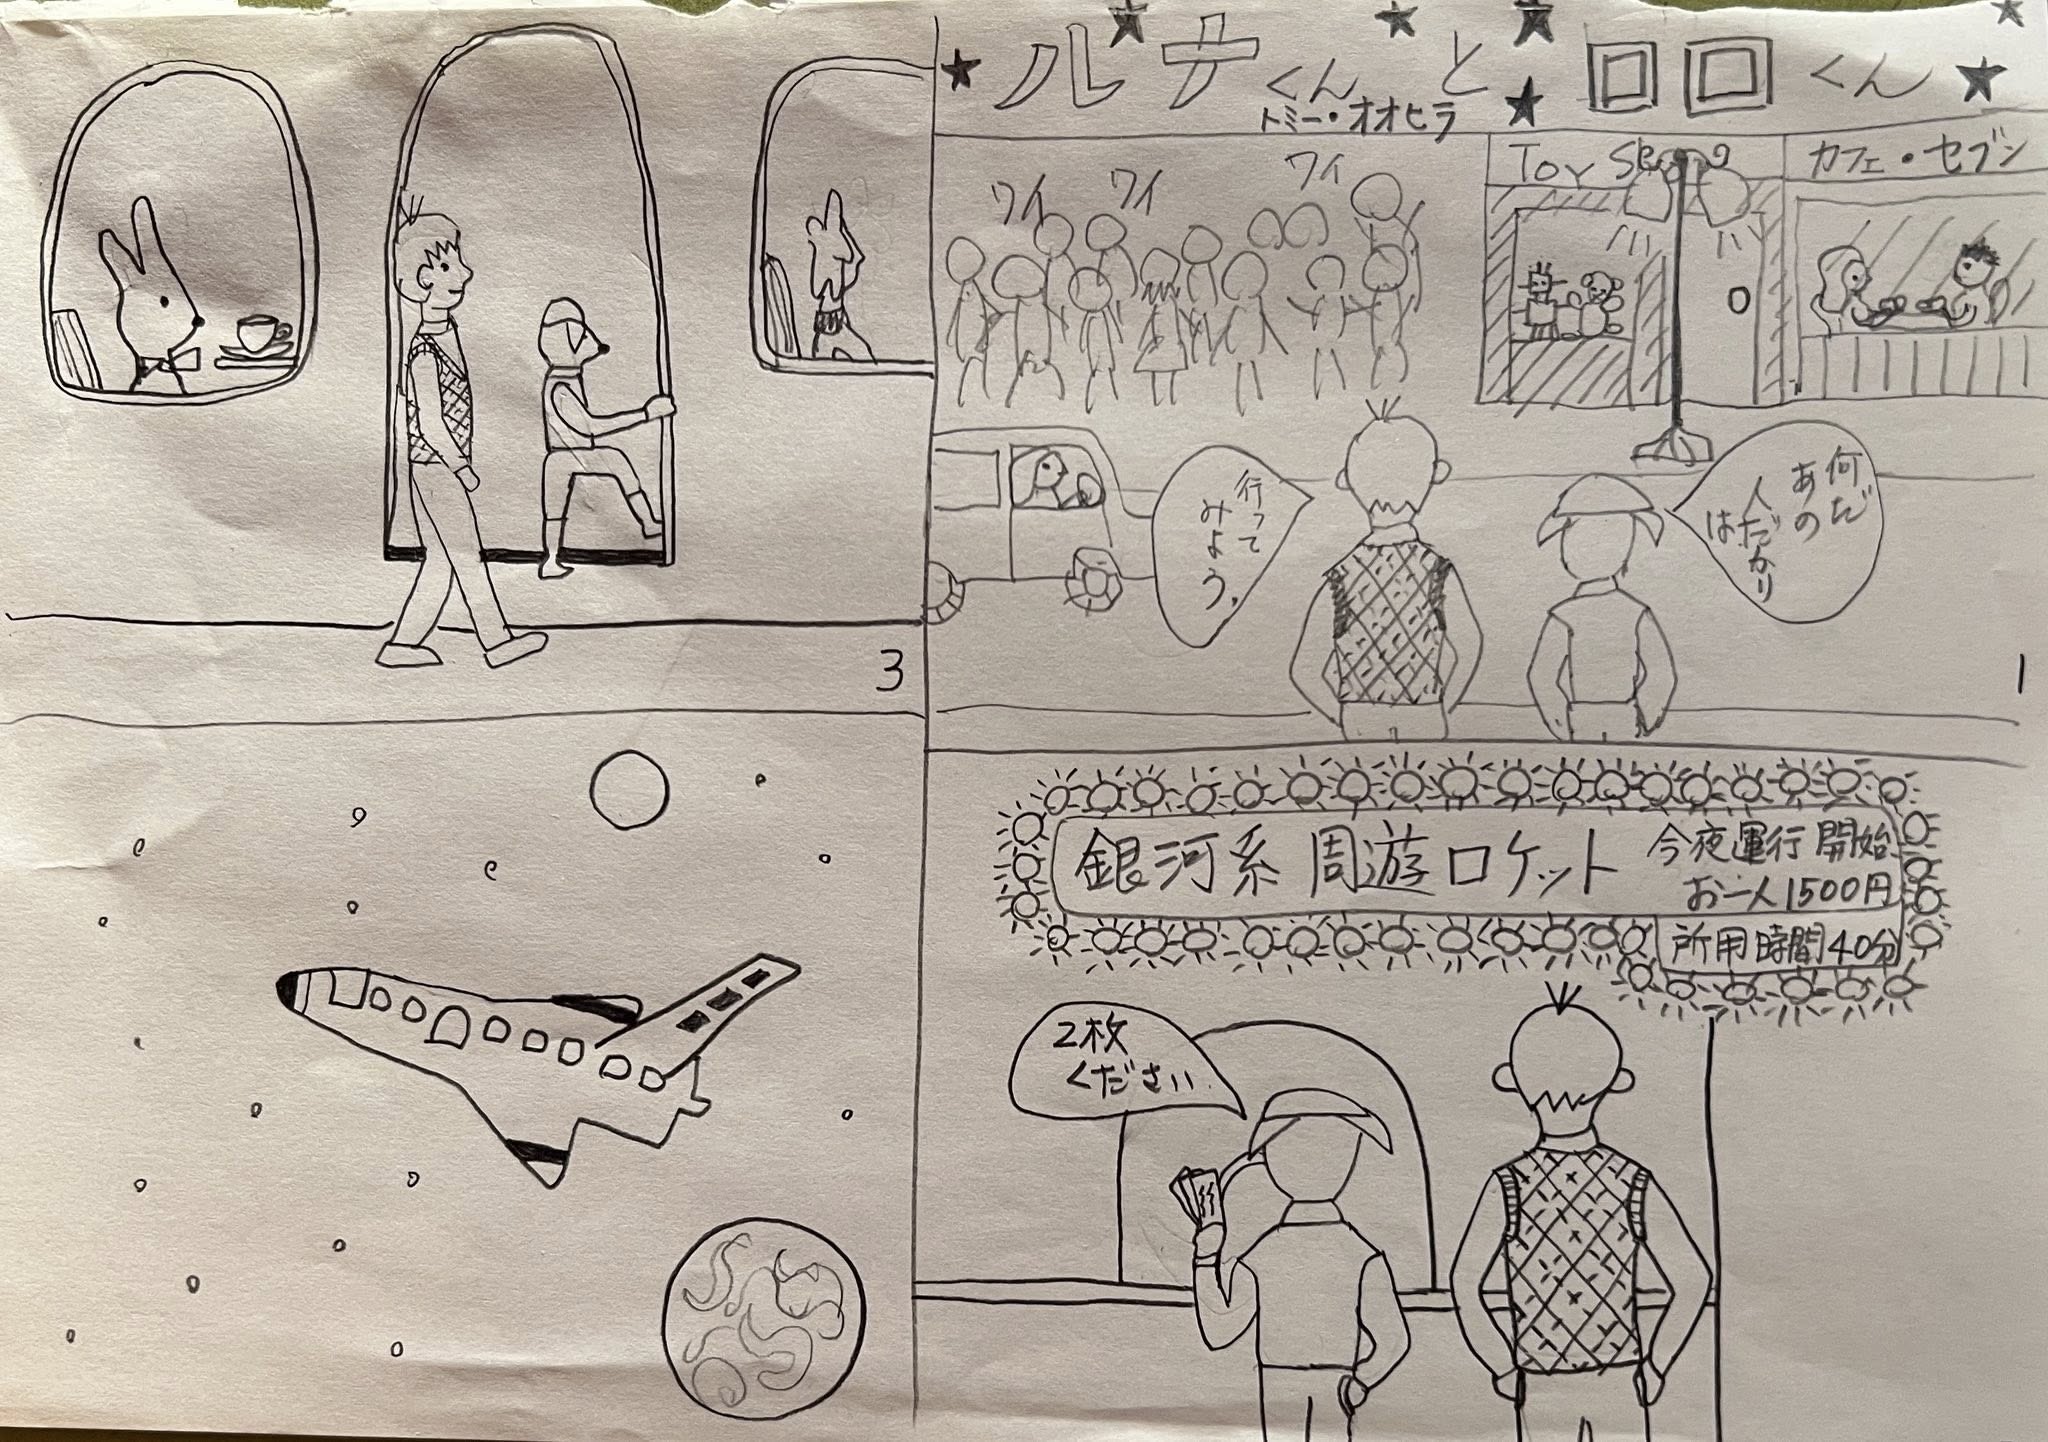 ルナくんとロロくん
トミー・オオヒラ
ワイ
ワイ
ワイ
Toy S
カフェ・セブン
何だ
あの
人だかり
は
行って
みよう。
1
銀河系 周遊ロケット
今夜運行開始
お一人1500円
所用時間40分
2枚
ください
3